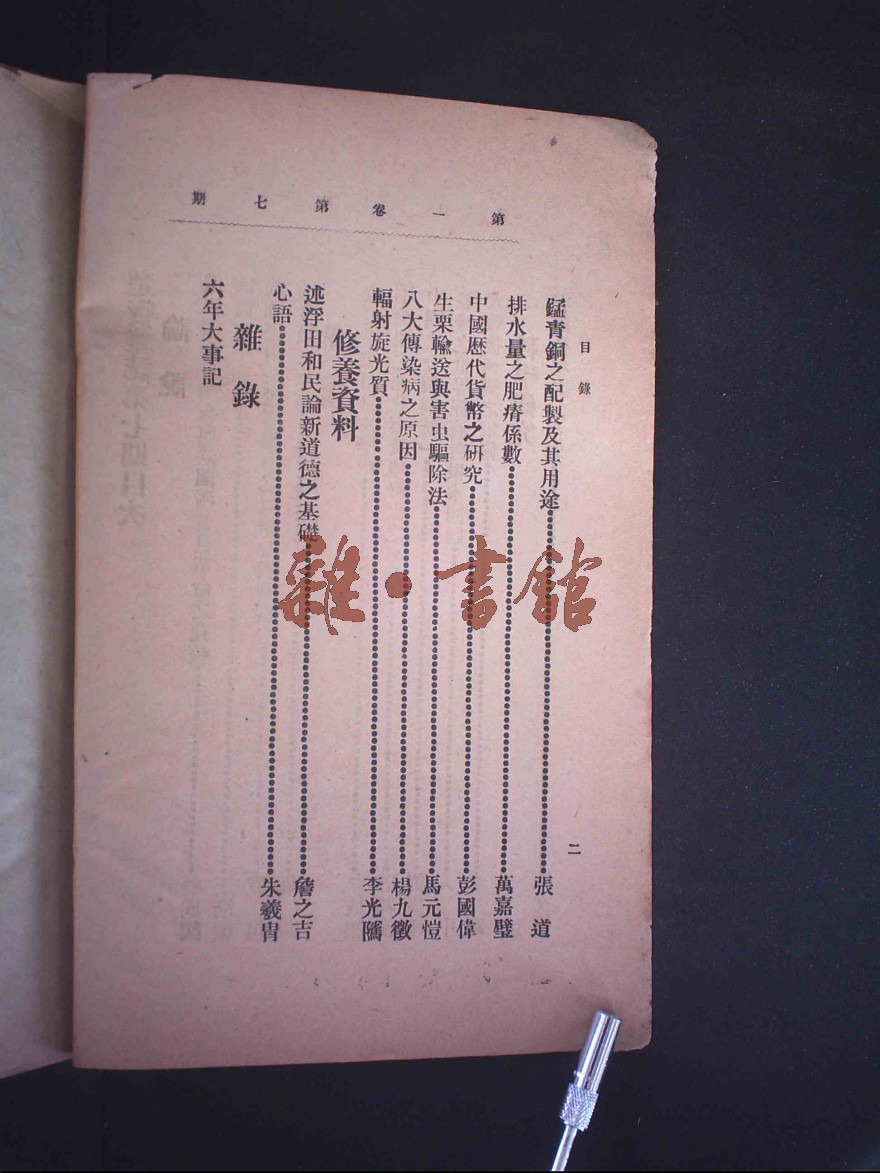 第一卷第七期
目錄
二
錳青銅之配製及其用途 張道
排水量之肥瘠係數 萬嘉璧
中國歷代貨幣之研究 彭國偉
生栗輸送與害虫驅除法 馬元愷
八大傳染病之原因 楊九徵
輻射旋光質 李光
修養資料
述浮田和民論新道德之基礎 詹之吉
心語 朱羲胄
雜錄
六年大事記
雜·書館